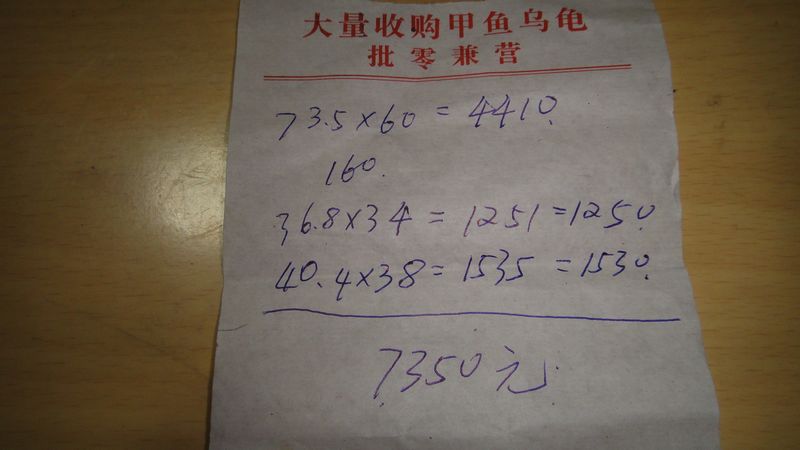 大量收购甲鱼乌龟
批零兼营
73.5×60=4410.
160.
36.8×34=1251=1250.
40.4×38=1535=1530.
7350元